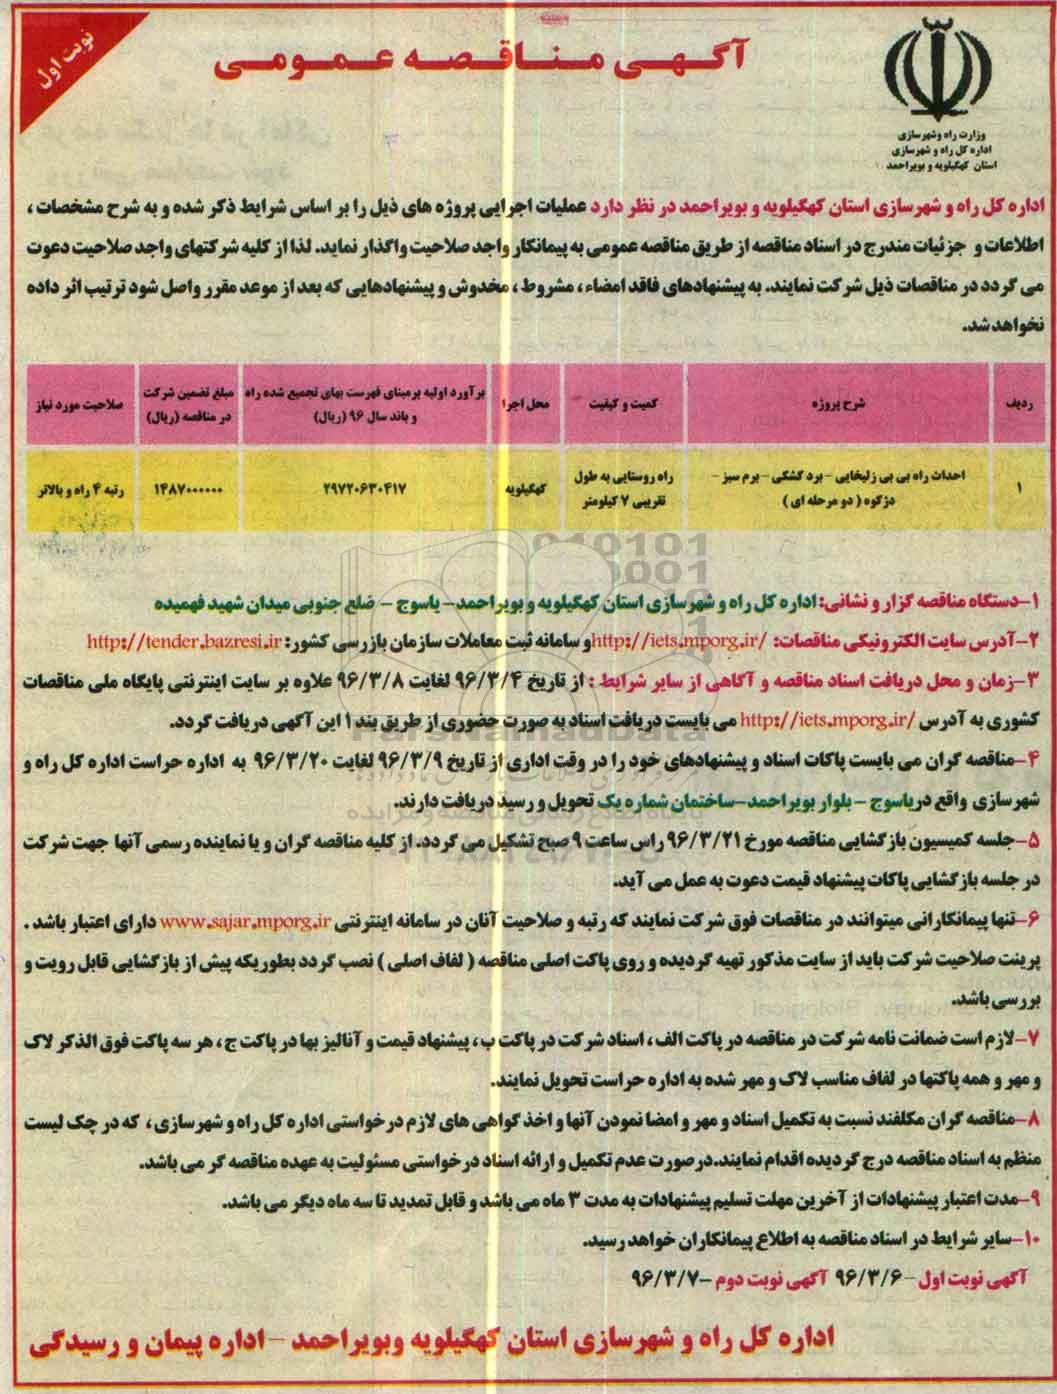 نوبت اول
آگهی مناقصه عمومی
وزارت راه وشهرسازی
اداره کل راه و شهرسازی
استان کهگیلویه و بویراحمد
اداره کل راه و شهرسازی استان کهگیلویه و بویراحمد در نظر دارد عملیات اجرایی پروژه های ذیل را بر اساس شرایط ذکر شده و به شرح مشخصات ،
اطلاعات و جزئیات مندرج در اسناد مناقصه از طریق مناقصه عمومی به پیمانکار واجد صلاحیت واگذار نماید. لذا از کلیه شرکتهای واجد صلاحیت دعوت
می گردد در مناقصات ذیل شرکت نمایند. به پیشنهادهای فاقد امضاء ، مشروط ، مخدوش و پیشنهادهایی که بعد از موعد مقرر واصل شود ترتیب اثر داده
نخواهد شد.
ردیف	شرح پروژه	کمیت و کیفیت	محل اجرا	برآورد اولیه برمبنای فهرست بهای تجمیع شده راه و باند سال ۹۶ (ریال)	مبلغ تضمین شرکت در مناقصه (ریال)	صلاحیت مورد نیاز
۱	احداث راه بی بی زلیخایی – برد کشکی – برم سبز – دژکوه ( دو مرحله ای )	راه روستایی به طول تقریبی ۷ کیلومتر	کهگیلویه	۲۹۷۲۰۶۳۰۴۱۷	۱۴۸۷۰۰۰۰۰۰	رتبه ۴ راه و بالاتر
۱–دستگاه مناقصه گزار و نشانی: اداره کل راه و شهرسازی استان کهگیلویه و بویراحمد – یاسوج – ضلع جنوبی میدان شهید فهمیده
۲–آدرس سایت الکترونیکی مناقصات: http://iets.mporg.ir/ و سامانه ثبت معاملات سازمان بازرسی کشور: http://tender.bazresi.ir
۳–زمان و محل دریافت اسناد مناقصه و آگاهی از سایر شرایط : از تاریخ ۹۶/۳/۴ لغایت ۹۶/۳/۸ علاوه بر سایت اینترنتی پایگاه ملی مناقصات
کشوری به آدرس http://iets.mporg.ir/ می بایست دریافت اسناد به صورت حضوری از طریق بند ۱ این آگهی دریافت گردد.
۴–مناقصه گران می بایست پاکات اسناد و پیشنهادهای خود را در وقت اداری از تاریخ ۹۶/۳/۹ لغایت ۹۶/۳/۲۰ به اداره حراست اداره کل راه و
شهرسازی واقع دریاسوج – بلوار بویراحمد–ساختمان شماره یک تحویل و رسید دریافت دارند.
۵–جلسه کمیسیون بازگشایی مناقصه مورخ ۹۶/۳/۲۱ راس ساعت ۹ صبح تشکیل می گردد. از کلیه مناقصه گران و یا نماینده رسمی آنها جهت شرکت
در جلسه بازگشایی پاکات پیشنهاد قیمت دعوت به عمل می آید.
۶–تنها پیمانکارانی میتوانند در مناقصات فوق شرکت نمایند که رتبه و صلاحیت آنان در سامانه اینترنتی www.sajar.mporg.ir دارای اعتبار باشد .
پرینت صلاحیت شرکت باید از سایت مذکور تهیه گردیده و روی پاکت اصلی مناقصه ( لفاف اصلی ) نصب گردد بطوریکه پیش از بازگشایی قابل رویت و
بررسی باشد.
۷–لازم است ضمانت نامه شرکت در مناقصه در پاکت الف ، اسناد شرکت در پاکت ب ، پیشنهاد قیمت و آنالیز بها در پاکت ج ، هر سه پاکت فوق الذکر لاک
و مهر و همه پاکتها در لفاف مناسب لاک و مهر شده به اداره حراست تحویل نمایند.
۸–مناقصه گران مکلفند نسبت به تکمیل اسناد و مهر و امضا نمودن آنها و اخذ گواهی های لازم درخواستی اداره کل راه و شهرسازی ، که در چک لیست
منظم به اسناد مناقصه درج گردیده اقدام نمایند.درصورت عدم تکمیل و ارائه اسناد درخواستی مسئولیت به عهده مناقصه گر می باشد.
۹–مدت اعتبار پیشنهادات از آخرین مهلت تسلیم پیشنهادات به مدت ۳ ماه می باشد و قابل تمدید تا سه ماه دیگر می باشد.
۱۰–سایر شرایط در اسناد مناقصه به اطلاع پیمانکاران خواهد رسید.
آگهی نوبت اول –۹۶/۳/۶ آگهی نوبت دوم –۹۶/۳/۷
اداره کل راه و شهرسازی استان کهگیلویه وبویراحمد – اداره پیمان و رسیدگی